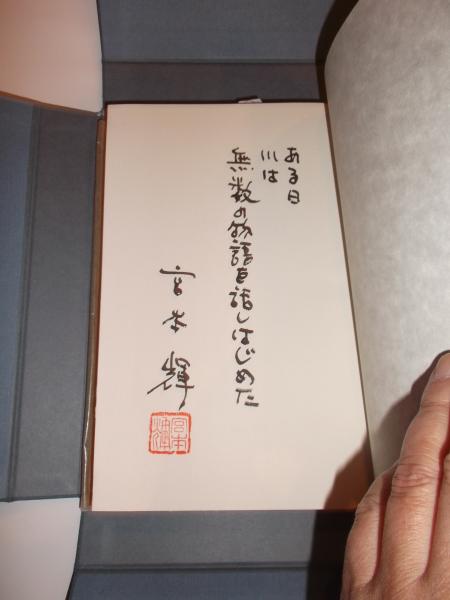 ある日
川は
無数の物語を話しはじめた
宮本輝
宮本